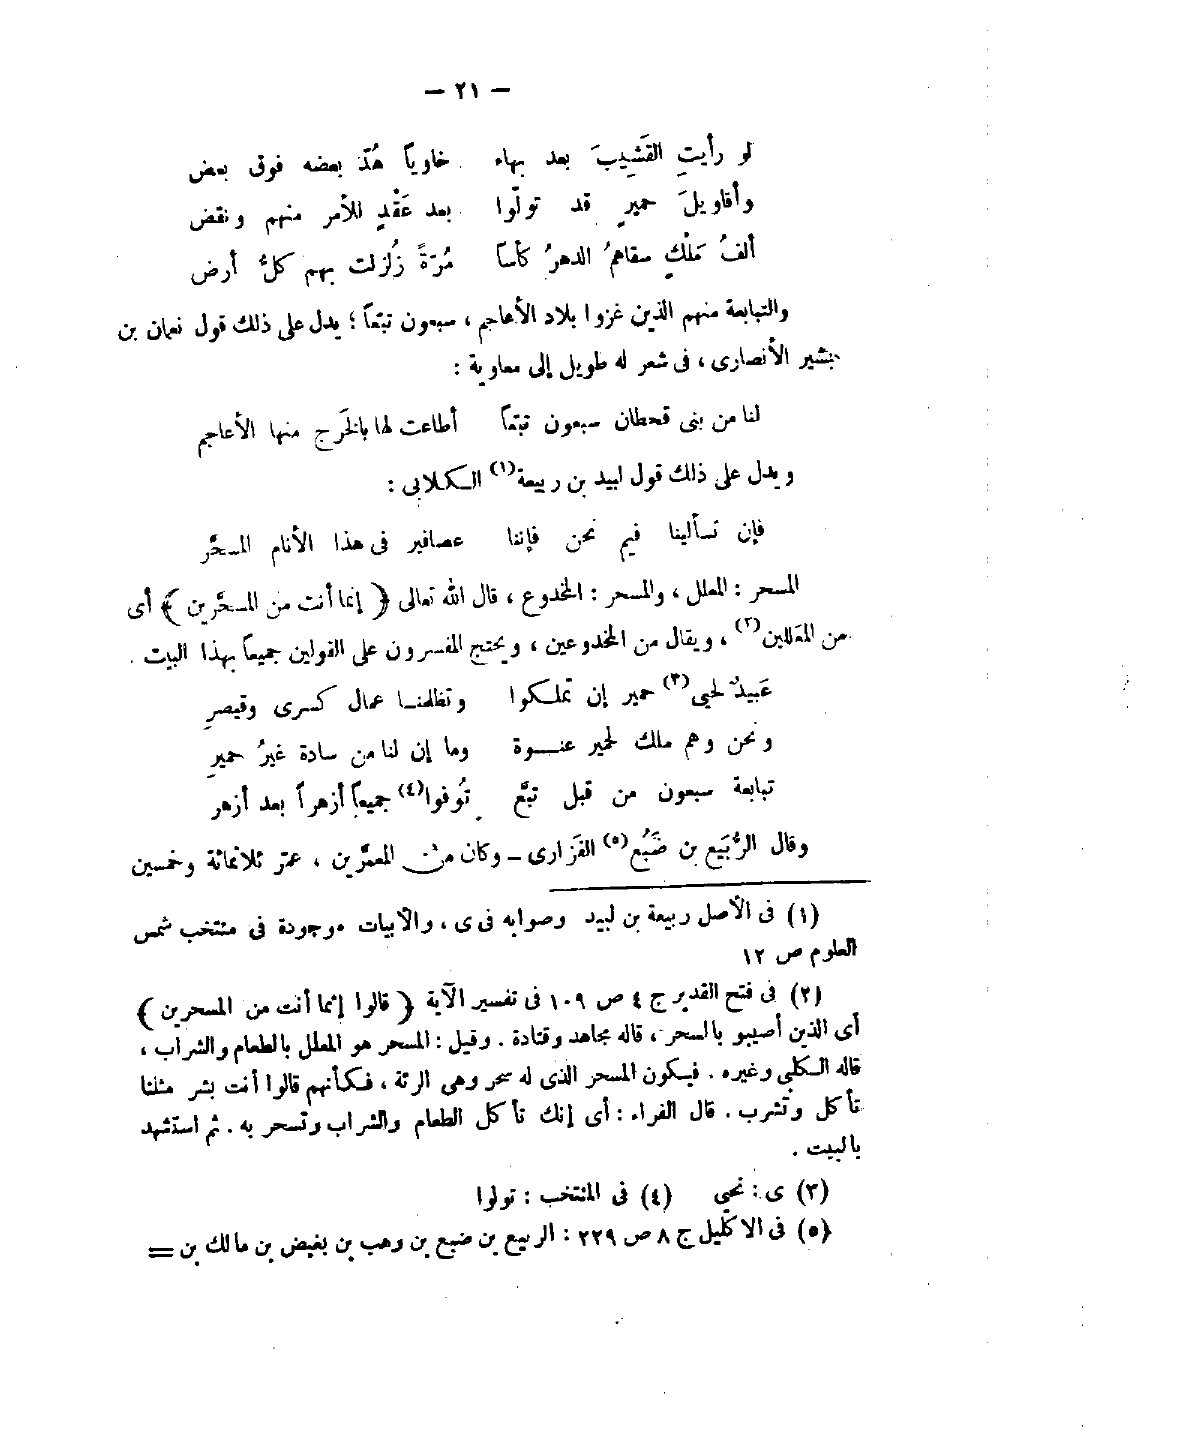 — ٢١ —
لو رأيتِ القَشِيبَ بعد بهاء خاوياً هُدّ بعضه فوق بعض
وأقاويلَ حميرٍ قد تولّوا بعد عَقْدٍ للأمر منهم ونقض
ألفُ مَلْكٍ سقاهمُ الدهرُ كأساً مُرّةً زُلزلت بهم كلُّ أرض
والتبابعة منهم الذين غزوا بلاد الأعاجم ، سبعون تبّعاً ؛ يدل على ذلك قول نعمان بن
بشير الأنصارى ، فى شعر له طويل إلى معاوية :
لنا من بنى قحطان سبعون تبّعاً أطاعت لها بالخَرج منها الأعاجم
ويدل على ذلك قول لبيد بن ربيعة(١) الكلابى :
فإن تسألينا فيم نحن فإننا عصافير فى هذا الأنام المسحَّر
المسحر : المعلل ، والمسحر : المخدوع ، قال الله تعالى ﴿ إنما أنت من المسحَّرين ﴾ أى
من المعَللين(٢) ، ويقال من المخدوعين ، ويحتج المفسرون على القولين جميعاً بهذا البيت .
عَبيدٌ لحيى(٣) حمير إن تملكوا وتظلمنا عمال كسرى وقيصرِ
ونحن وهم ملك لحمير عنوة وما إن لنا من سادة غيرُ حميرِ
تبابعة سبعون من قبل تبَّع تُوفوا(٤) جميعاً أزهراً بعد أزهر
وقال الرُّبَيع بن ضَبُع(٥) الفَزارى – وكان من المعمَّرين ، عمّر ثلاثمائة وخمسين
(١) فى الأصل ربيعة بن لبيد وصوابه فى ى ، والأبيات موجودة فى منتخب شمس
العلوم ص ١٢
(٢) فى فتح القدير ج ٤ ص ١٠٩ فى تفسير الآية ﴿ قالوا إنما أنت من المسحرين ﴾
أى الذين أصيبو بالسحر ، قاله مجاهد وقتادة . وقيل : المسحر هو المعلل بالطعام والشراب ،
قاله الكلبى وغيره . فيكون المسحر الذى له سحر وهى الرئة ، فكأنهم قالوا أنت بشر مثلنا
تأكل وتشرب . قال الفراء : أى إنك تأكل الطعام والشراب وتسحر به . ثم استشهد
بالبيت .
(٣) ى : نحيى (٤) فى المنتخب : تولوا
(٥) فى الاكليل ج ٨ ص ٢٢٩ : الربيع بن ضبع بن وهب بن بغيض بن مالك بن =